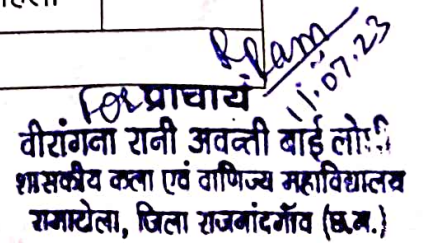 11.07.23
For प्राचार्य
वीरांगना रानी अवन्ती बाई
शासकीय कला एवं वाणिज्य महाविद्यालय
जिला राजनांदगाँव (छ.ग.)